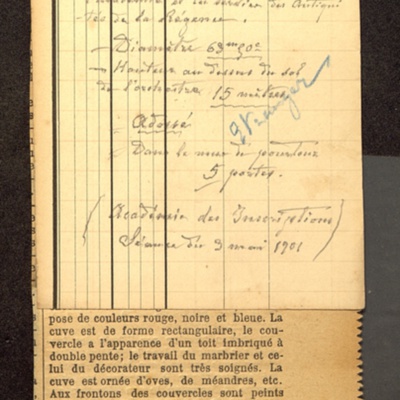 l'Académie et la section des Antiqui
tés de la Régence.
— Diamètre 63 m 50 c
— Hauteur au dessus du sol
de l'orchestre 15 mètres
Adossé
Dans le mur de pourtour
5 portes.
Étranger
(Académie des Inscriptions)
Séance du 3 mai 1901
posé de couleurs rouge, noire et bleue. La
cuve est de forme rectangulaire, le cou-
vercle a l'apparence d'un toit imbriqué à
double pente; le travail du marbrier et ce-
lui du décorateur sont très soignés. La
cuve est ornée d'oves, de méandres, etc.
Aux frontons des couvercles sont peints